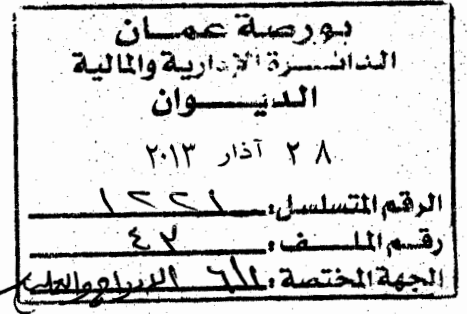 بورصة عمان
الدائرة الإدارية والمالية
الديوان
٢٨ آذار ٢٠١٣
الرقم المتسلسل: ١٢٢١
رقم الملف: ٤٣
الجهة المختصة: الادراج والعمليات